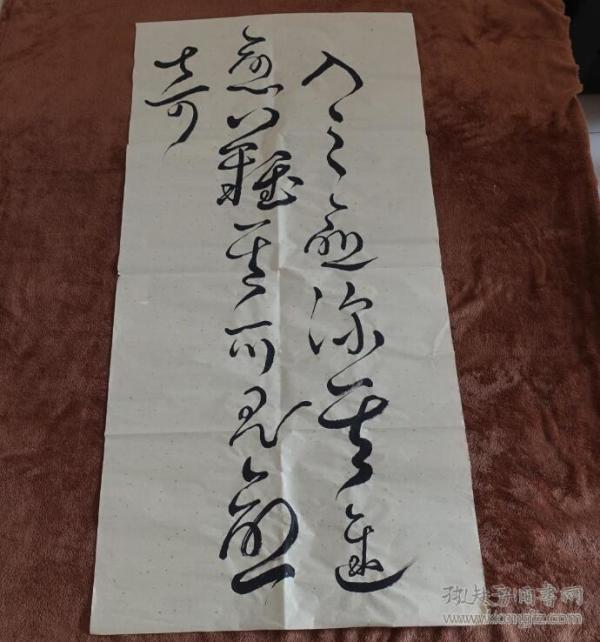 入之愈深其進
愈難其所見愈
奇
孔夫子旧书网
www.kongfz.com